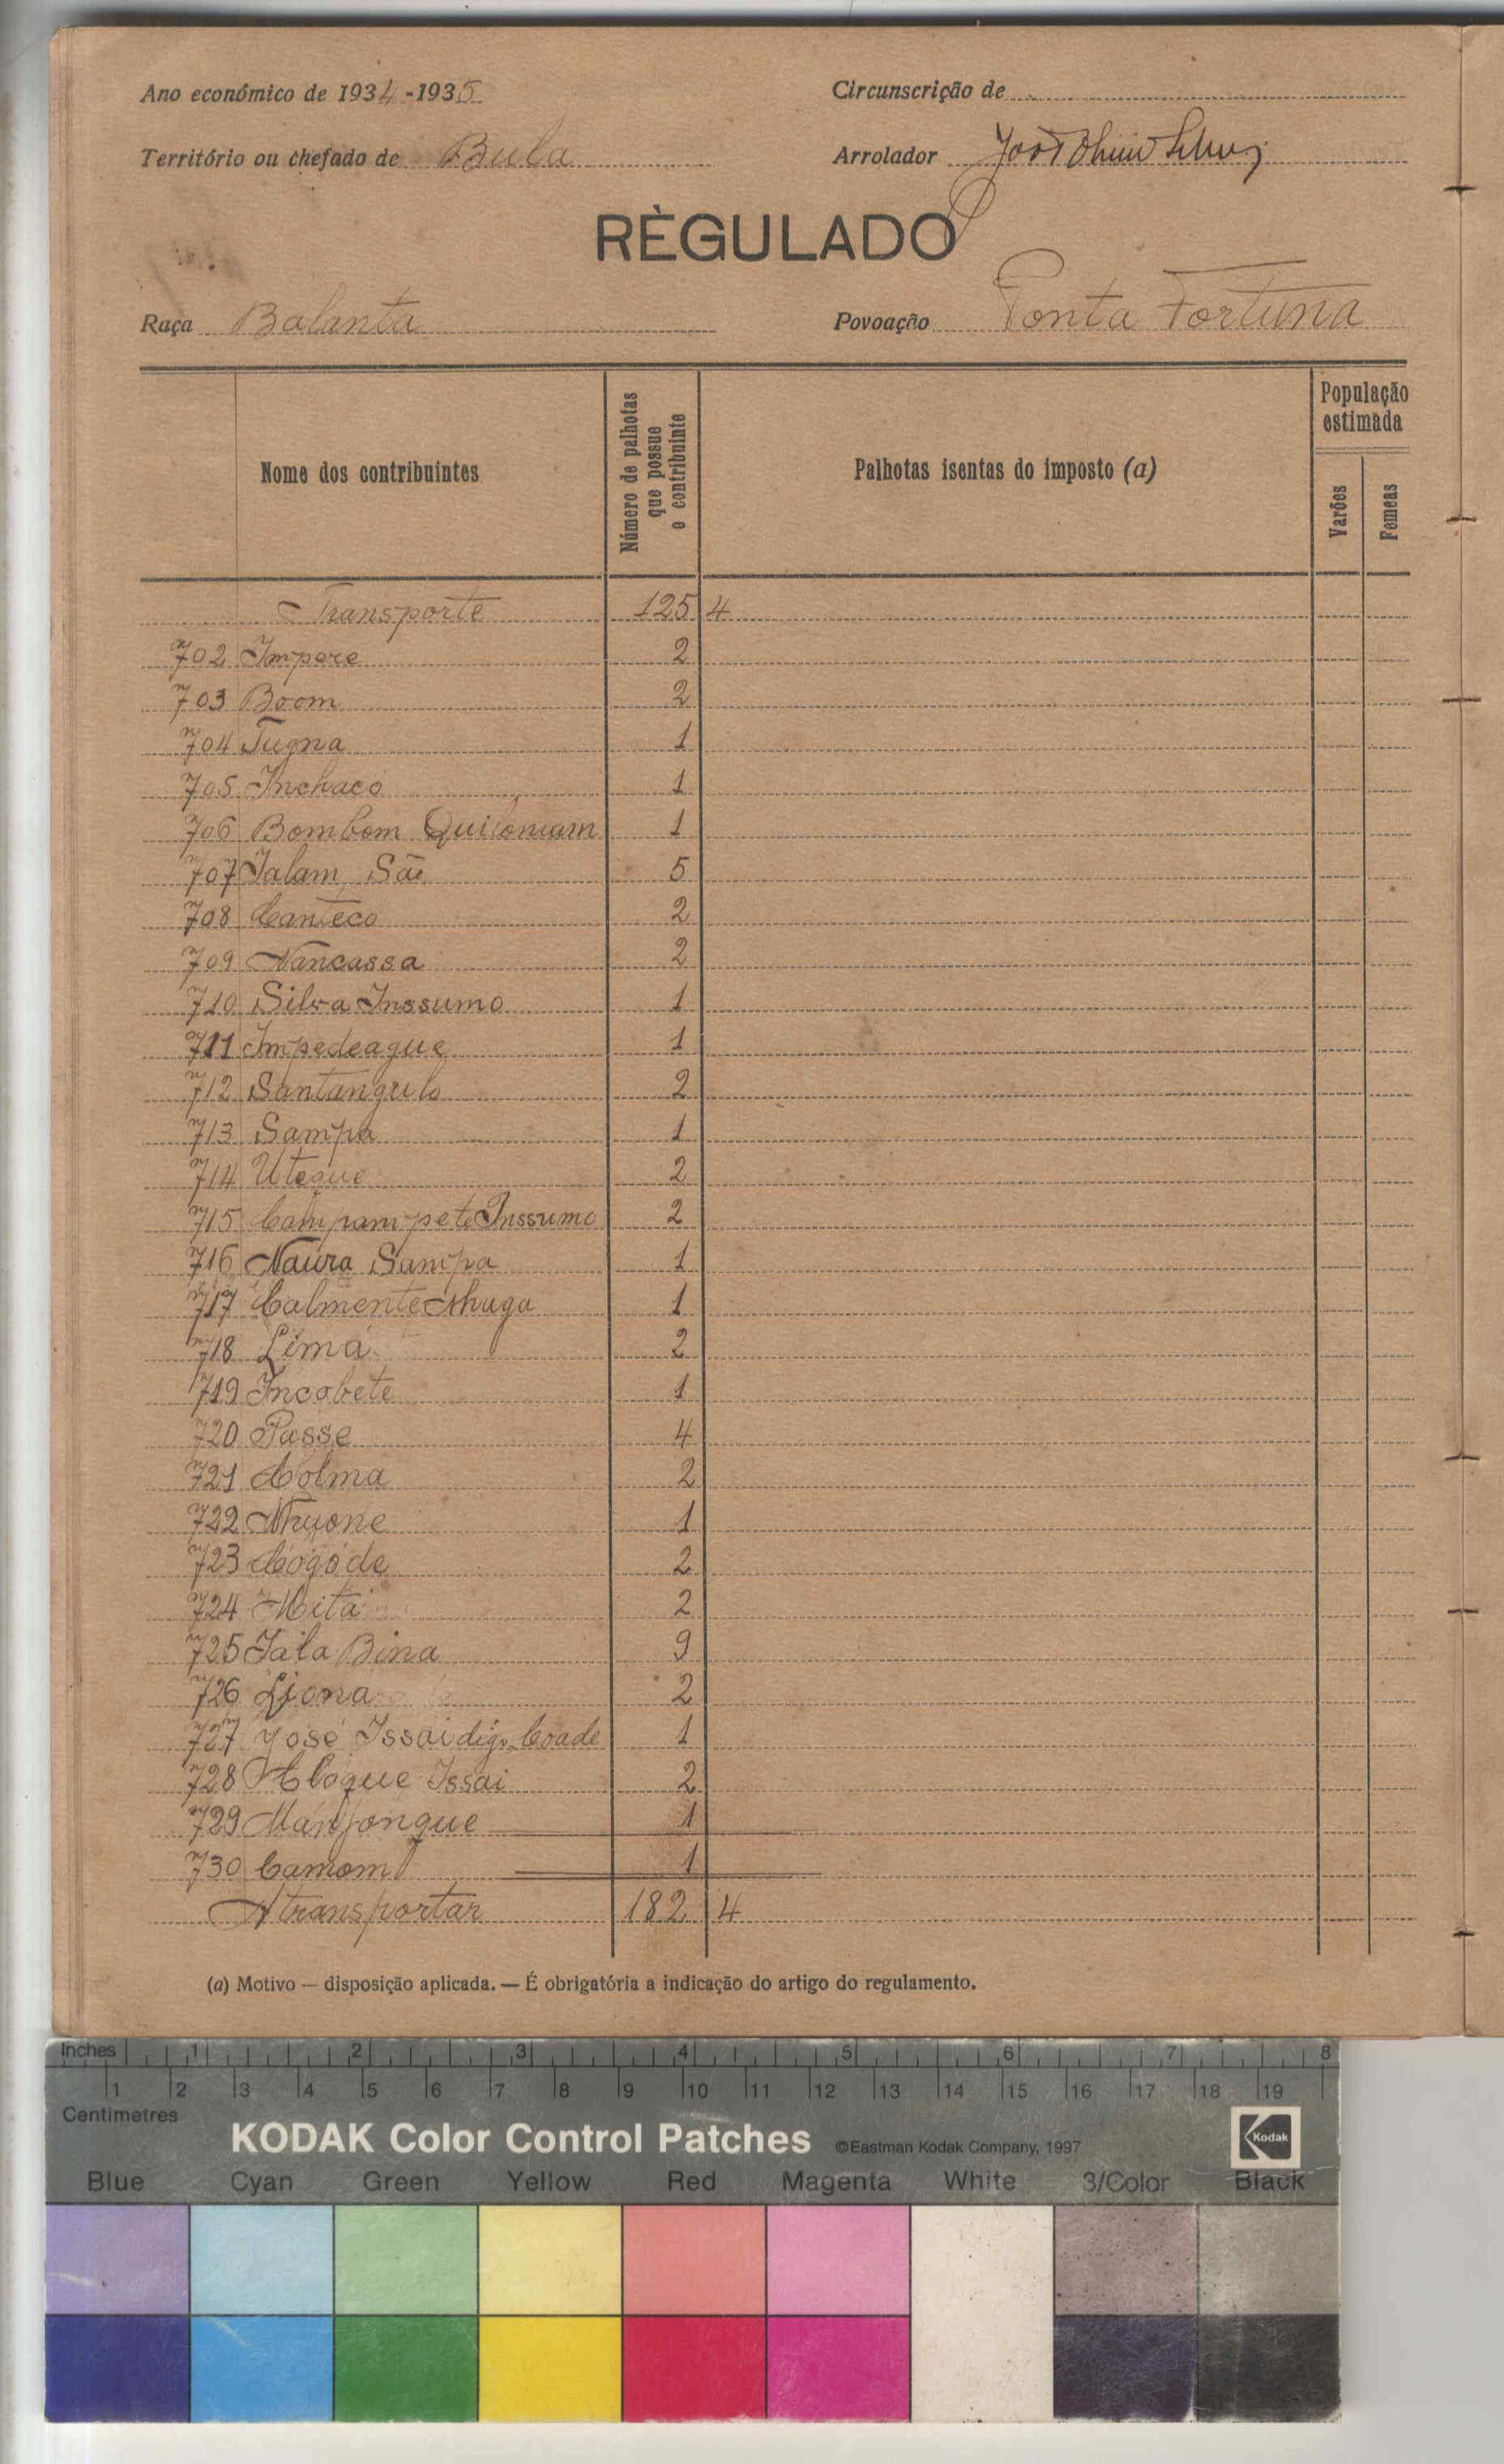 Ano económico de 1934-1935
Circunscrição de
Território ou chefado de Bula
Arrolador
RÈGULADO
Raça Balanta
Povoação Ponta Fortuna
Nome dos contribuintes
Número de palhotas que possue o contribuinte
Palhotas isentas do imposto (a)
População estimada
Varões
Femeas
Transporte 125 4
702 Impere 2
703 Boom 2
704 Tugna 1
705 Inchacó 1
706 Bombom 1
707 Jalam São 5
708 Canteco 2
709 Nancassa 2
710 Silva Inssumo 1
711 Impedeague 1
712 Santangulo 2
713 Sampa 1
714 Uteque 2
715 Campampete Inssumo 2
716 Naura Sampa 1
717 Calmente 1
718 Limá 2
719 Incobete 1
720 Passe 4
721 Colma 2
722 Nhuone 1
723 Cogóde 2
724 Mitá 2
725 Jala Bina 9
726 Liona 2
727 José Issai digo Coade 1
728 Aloque Issai 2
729 Manfonque 1
730 Camom 1
A transportar 182 4
(a) Motivo — disposição aplicada. — É obrigatória a indicação do artigo do regulamento.
Inches 1 2 3 4 5 6 7 8
1 2 3 4 5 6 7 8 9 10 11 12 13 14 15 16 17 18 19
Centimetres
KODAK Color Control Patches ©Eastman Kodak Company, 1997 Kodak
Blue Cyan Green Yellow Red Magenta White 3/Color Black